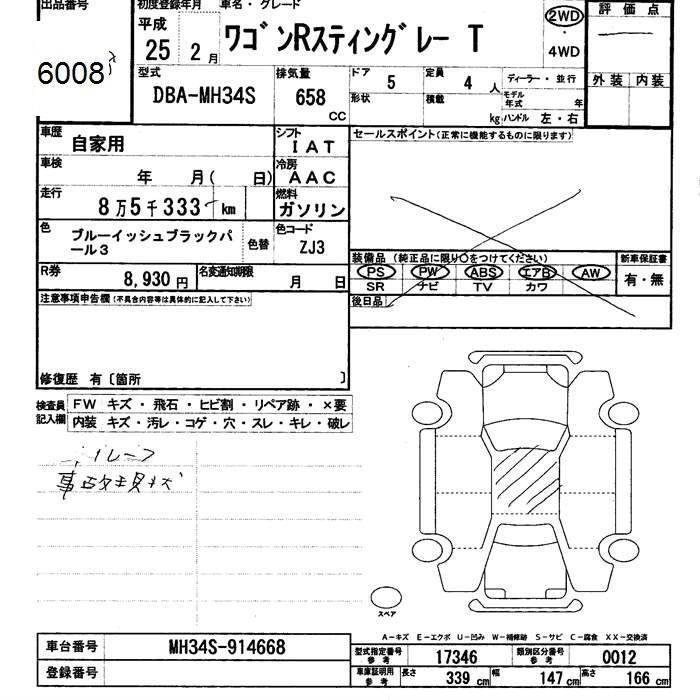 出品番号
6008
初度登録年月 車名・グレード
平成
25 2月 ワゴンRスティングレー T
2WD
・
4WD
評価点
外装 内装
型式
DBA-MH34S
排気量
658
CC
ドア 5
定員 4 人
形状 積載 kg
ディーラー・並行
モデル年式 年
ハンドル 左・右
車歴
自家用
シフト
IAT
車検
年 月( 日)
冷房
AAC
走行
8万5千333km
燃料
ガソリン
色
ブルーイッシュブラックパ
ール3
色替
色コード
ZJ3
R券
8,930円
名変通知期限
月 日
セールスポイント(正常に機能するものに限ります)
装備品(純正品に限り〇をつけてください)
PS PW ABS エアB AW
SR ナビ TV カワ
新車保証書
有・無
後日品
注意事項申告欄(不具合内容等は具体的に記入して下さい)
修復歴 有〔箇所 〕
検査員
記入欄
FW キズ・飛石・ヒビ割・リペア跡・×要
内装 キズ・汚レ・コゲ・穴・スレ・キレ・破レ
ルーフ
事故現状
スペア
A-キズ E-エクボ U-凹み W-補修跡 S-サビ C-腐食 XX-交換済
車台番号 MH34S-914668
登録番号
型式指定番号
参考
17346
類別区分番号
参考
0012
車庫証明用
参考
長さ 339cm 幅 147cm 高さ 166cm